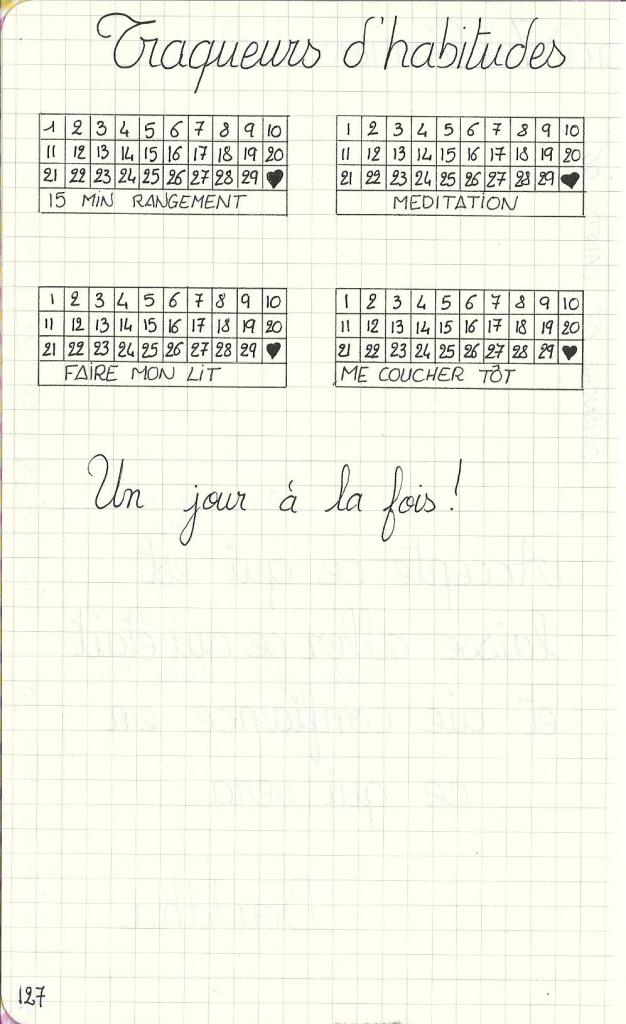 Traqueurs d'habitudes
1 2 3 4 5 6 7 8 9 10
11 12 13 14 15 16 17 18 19 20
21 22 23 24 25 26 27 28 29 ♥
15 MIN RANGEMENT
1 2 3 4 5 6 7 8 9 10
11 12 13 14 15 16 17 18 19 20
21 22 23 24 25 26 27 28 29 ♥
MEDITATION
1 2 3 4 5 6 7 8 9 10
11 12 13 14 15 16 17 18 19 20
21 22 23 24 25 26 27 28 29 ♥
FAIRE MON LIT
1 2 3 4 5 6 7 8 9 10
11 12 13 14 15 16 17 18 19 20
21 22 23 24 25 26 27 28 29 ♥
ME COUCHER TÔT
Un jour à la fois !
Accepte ce qui est
laisse aller ce qui était
et aie confiance en
ce qui sera.
127